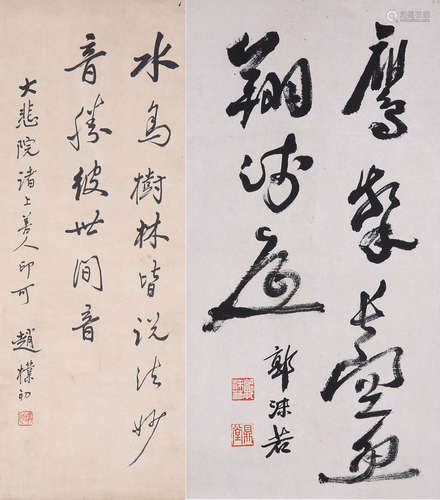 水鳥樹林皆说法妙
音勝彼世间音
大悲院诸上善人印可
趙樸初
鷹擊長空魚
翔浅底
郭沫若